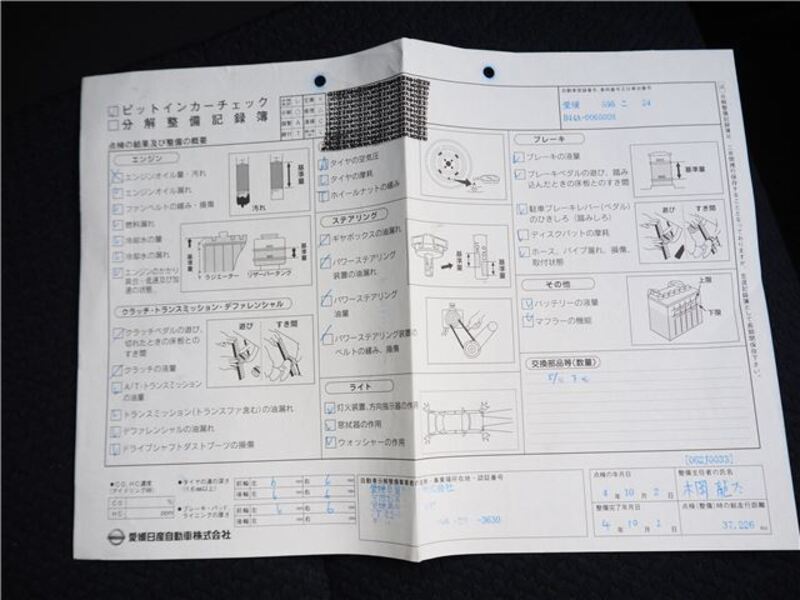 ピットインカーチェック
分解整備記録簿
点検の結果及び整備の概要
エンジン
エンジンオイル量・汚れ
エンジンオイル漏れ
ファンベルトの緩み・損傷
燃料漏れ
冷却水の量
冷却水の漏れ
エンジンのかかり
具合・低速及び加
速の状態
基準量
汚れ
基準量
ラジエーター
リザーバータンク
クラッチ・トランスミッション・デファレンシャル
クラッチペダルの遊び、
切れたときの床板との
すき間
クラッチの液量
A/T・トランスミッション
の油量
トランスミッション(トランスファ含む)の油漏れ
デファレンシャルの油漏れ
ドライブシャフトダストブーツの損傷
遊び
すき間
タイヤの空気圧
タイヤの摩耗
ホイールナットの緩み
ステアリング
ギヤボックスの油漏れ
パワーステアリング
装置の油漏れ
パワーステアリング
油量
パワーステアリング装置の
ベルトの緩み、損傷
基準量
HOT
COLD
基準量
ライト
灯火装置、方向指示器の作用
窓拭器の作用
ウォッシャーの作用
愛媛
ブレーキ
ブレーキの液量
ブレーキペダルの遊び、踏み
込んだときの床板とのすき間
駐車ブレーキレバー(ペダル)
のひきしろ(踏みしろ)
ディスクパットの摩耗
ホース、パイプ漏れ、損傷、
取付状態
基準量
遊び
すき間
その他
バッテリーの液量
マフラーの機能
上限
下限
交換部品等(数量)
●CO、HC濃度
(アイドリング時)
CO
%
HC
ppm
●タイヤの溝の深さ
(1.6mm以上)
●ブレーキ・パッド
ライニングの厚さ
前輪 左 6 mm 右 6 mm
後輪 左 6 mm 右 6 mm
前輪 左 6 mm 右 6 mm
愛媛日産自動車株式会社
-3630
点検の年月日
4年10月2日
整備完了年月日
4年10月2日
整備主任者の氏名
点検(整備)時の総走行距離
37,226 Km